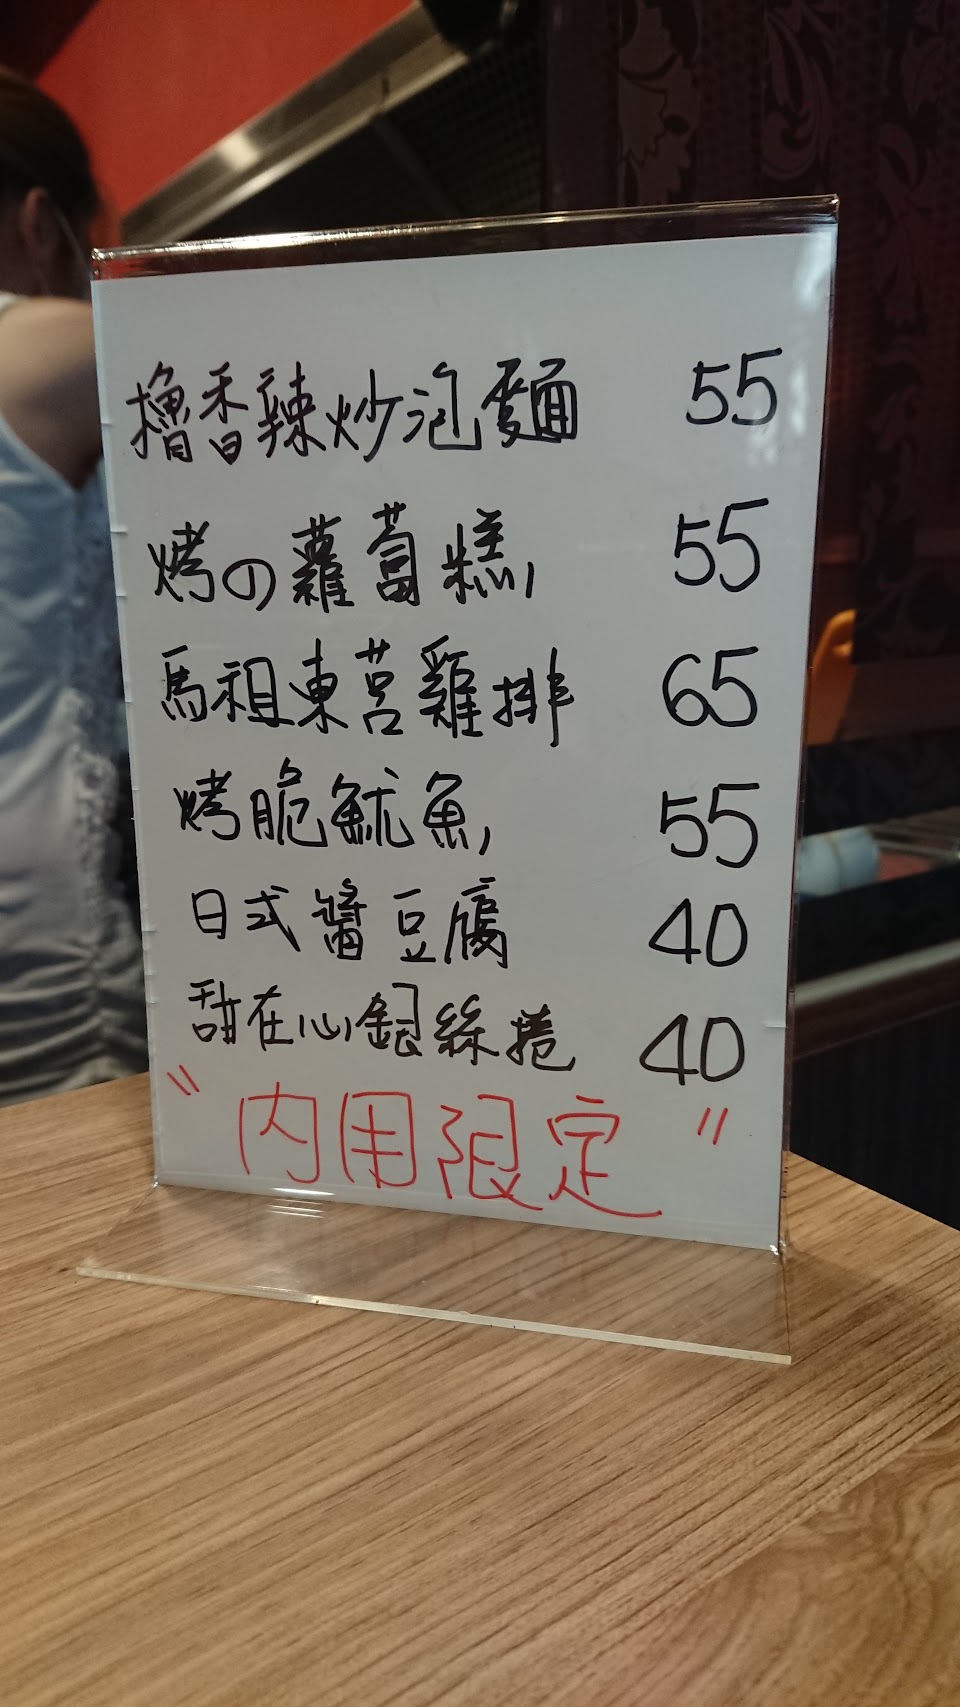 櫓香辣炒泡麵 55
烤の蘿蔔糕 55
馬祖東莒雞排 65
烤脆魷魚 55
日式醬豆腐 40
甜在心銀絲捲 40
"內用限定"